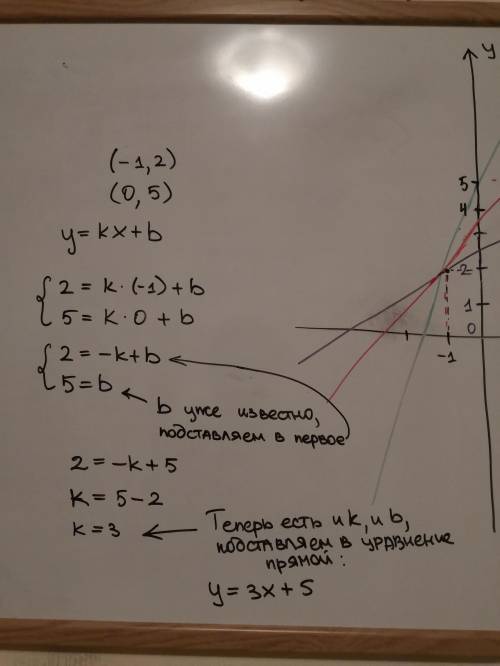 (-1,2)
(0,5)
y=kx+b
2=k·(-1)+b
5=k·0+b
2=-k+b
5=b
b уже известно,
подставляем в первое
2=-k+5
k=5-2
k=3
Теперь есть и k, и b,
подставляем в уравнение
прямой:
y=3x+5
y
5
4
2
1
0
-1